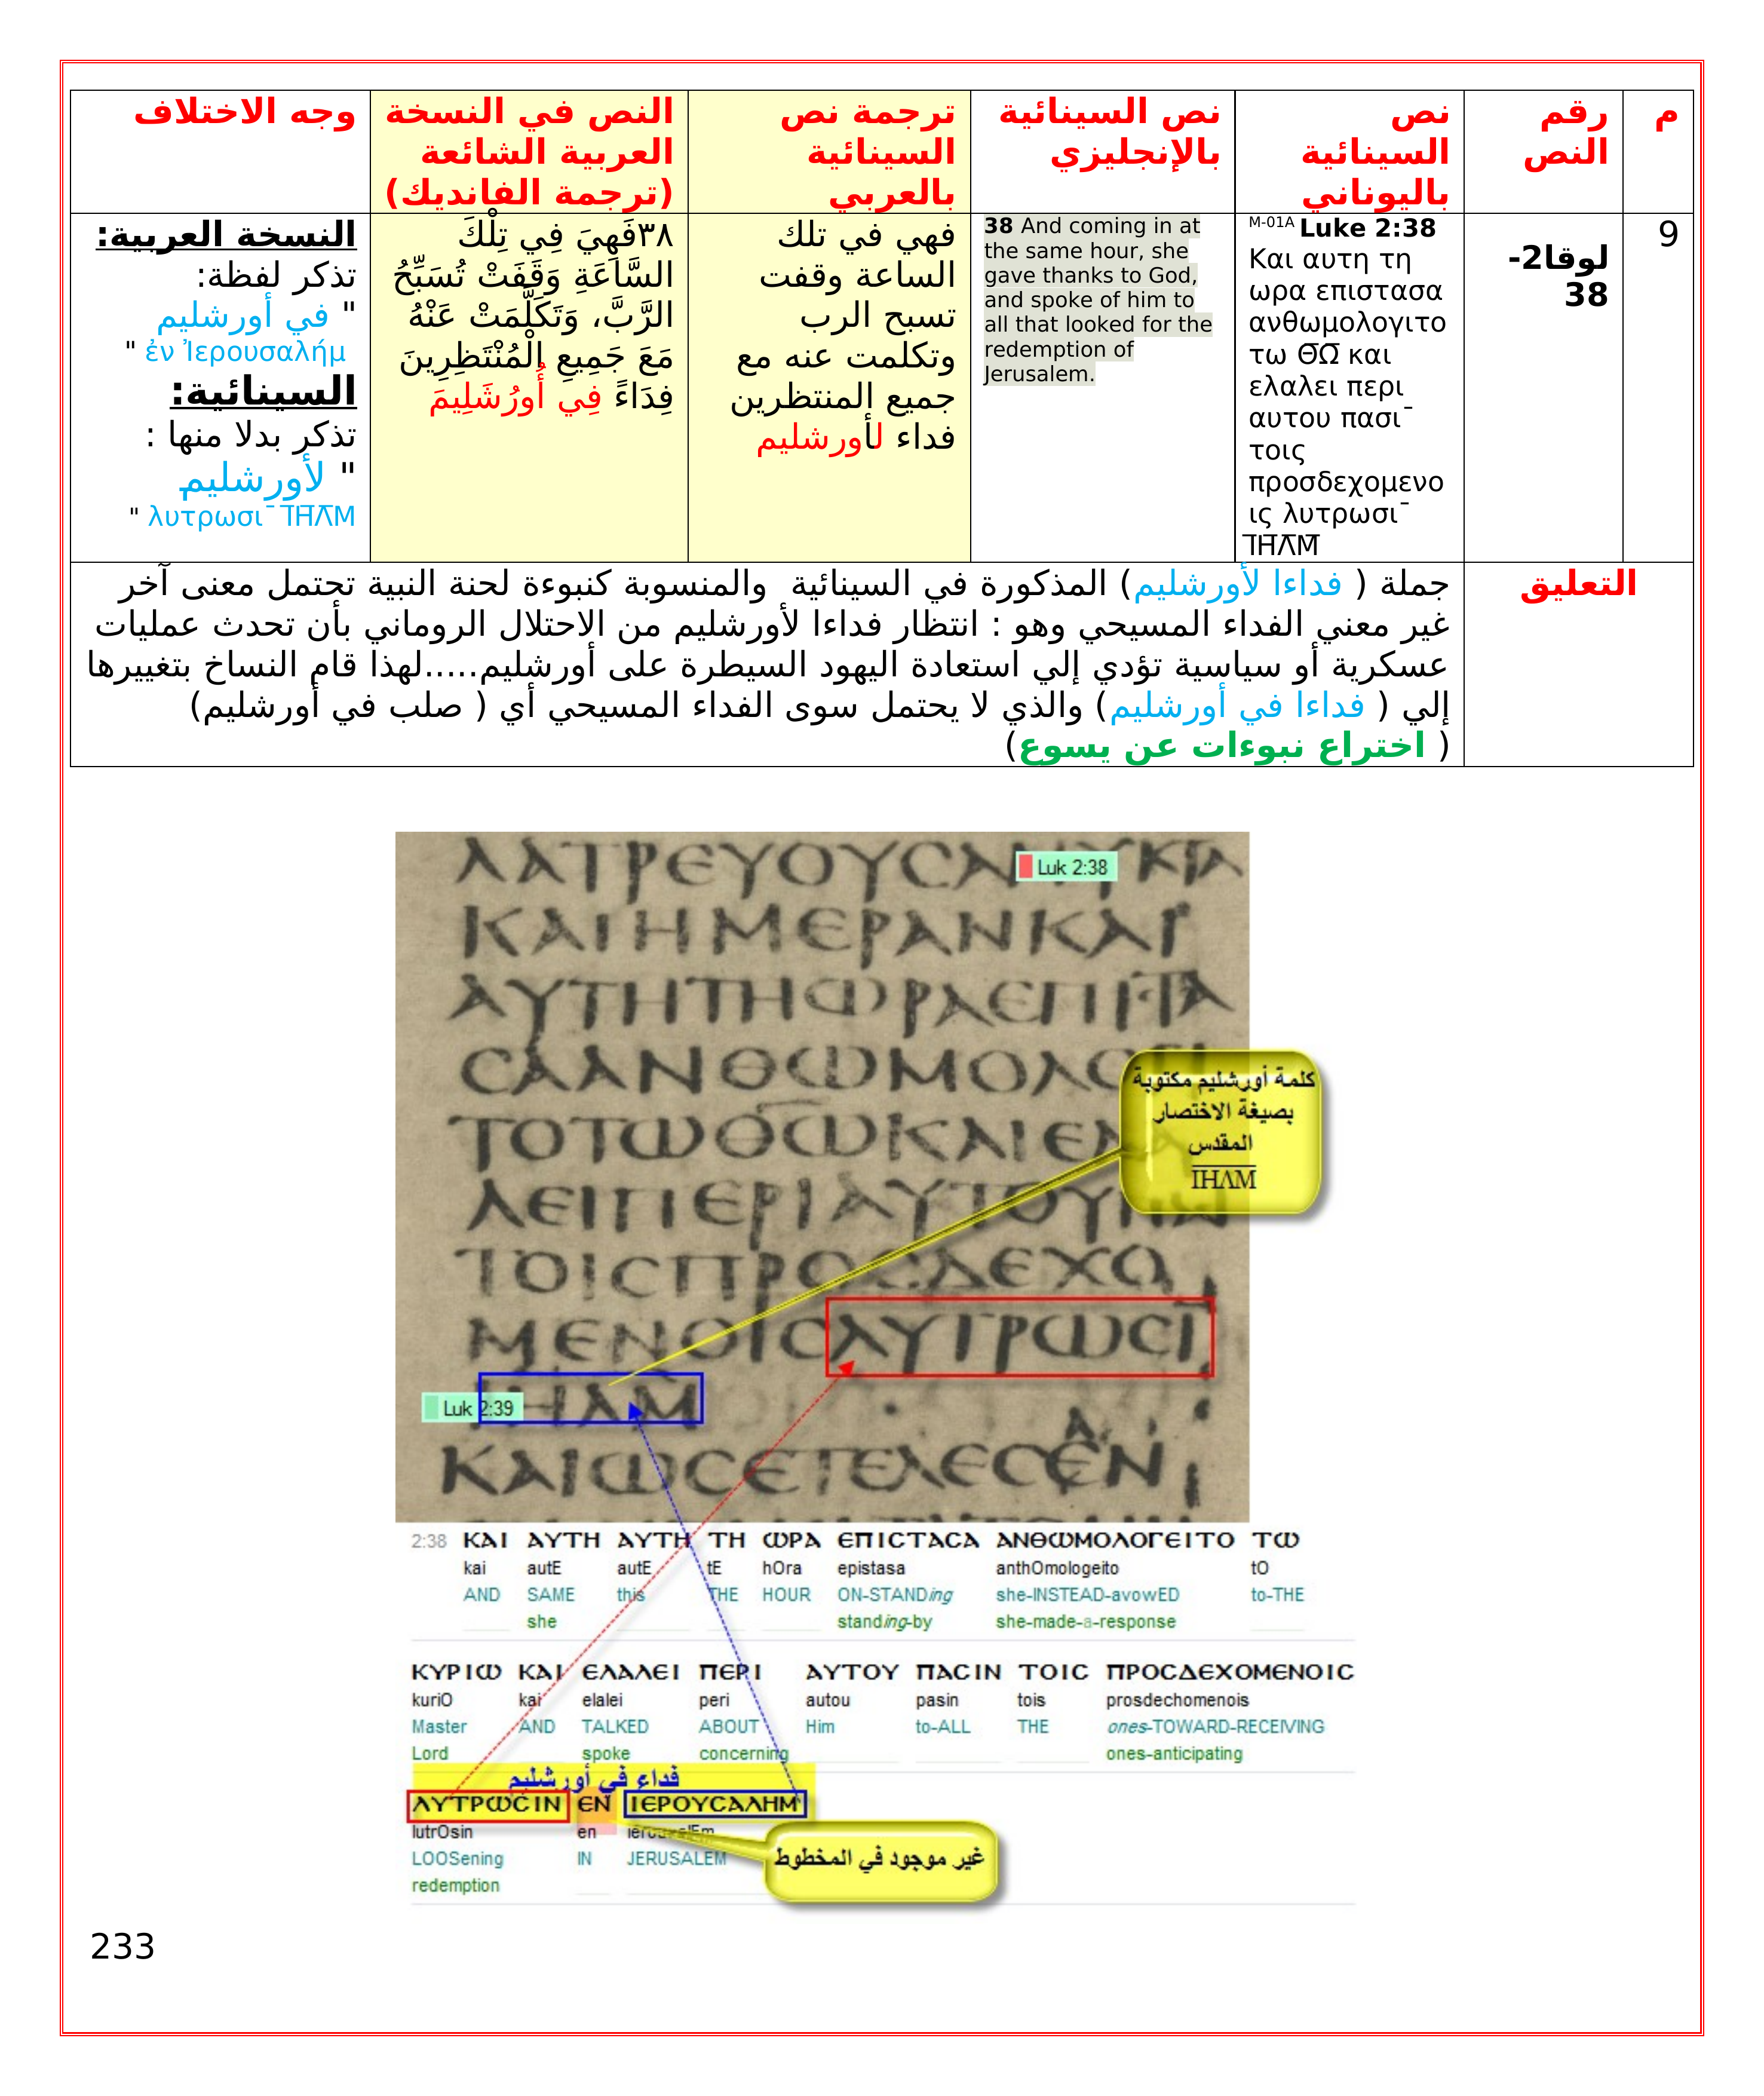 م
رقم
النص
نص
السينائية
باليوناني
نص السينائية
بالإنجليزي
ترجمة نص
السينائية
بالعربي
النص في النسخة
العربية الشائعة
(ترجمة الفانديك)
وجه الاختلاف
9
لوقا2-
38
M-01A Luke 2:38
Και αυτη τη
ωρα επιστασα
ανθωμολογιτο
τω Θ̅Ω̅ και
ελαλει περι
αυτου πασι¯
τοις
προσδεχομενο
ις λυτρωσι¯
Ι̅Η̅Λ̅Μ̅
38 And coming in at
the same hour, she
gave thanks to God,
and spoke of him to
all that looked for the
redemption of
Jerusalem.
فهي في تلك
الساعة وقفت
تسبح الرب
وتكلمت عنه مع
جميع المنتظرين
فداء لأورشليم
٣٨فَهِيَ فِي تِلْكَ
السَّاعَةِ وَقَفَتْ تُسَبِّحُ
الرَّبَّ، وَتَكَلَّمَتْ عَنْهُ
مَعَ جَمِيعِ الْمُنْتَظِرِينَ
فِدَاءً فِي أُورُشَلِيمَ
النسخة العربية:
تذكر لفظة:
" في أورشليم
ἐν Ἰερουσαλήμ "
السينائية:
تذكر بدلا منها :
" لأورشليم
λυτρωσι¯ Ι̅Η̅Λ̅Μ "
التعليق
جملة ( فداءا لأورشليم) المذكورة في السينائية والمنسوبة كنبوءة لحنة النبية تحتمل معنى آخر
غير معني الفداء المسيحي وهو : انتظار فداءا لأورشليم من الاحتلال الروماني بأن تحدث عمليات
عسكرية أو سياسية تؤدي إلي استعادة اليهود السيطرة على أورشليم.....لهذا قام النساخ بتغييرها
إلي ( فداءا في أورشليم) والذي لا يحتمل سوى الفداء المسيحي أي ( صلب في أورشليم)
( اختراع نبوءات عن يسوع)
Luk 2:38
ΚΑΙΗΜΕΡΑΝΚΑΙ
ΑΥΤΗΤΗΩΡΑΕΠΙΣΤΑ
ϹΑΑΝΘΩΜΟΛΟ
ΤΟΤΩΘΩΚΑΙΕΛΑ
ΛΕΙΠΕΡΙΑΥΤΟΥ
ΤΟΙϹΠΡΟϹΔΕΧΟ
ΜΕΝΟΙϹΛΥΤΡΩϹΙ
ΙΗΛΜ
Luk 2:39
ΚΑΙΩϹΕΤΕΛΕϹΕΝ
كلمة أورشليم مكتوبة
بصيغة الاختصار
المقدس
Ι̅Η̅Λ̅Μ̅
2:38 ΚΑΙ ΑΥΤΗ ΑΥΤΗ ΤΗ ΩΡΑ ΕΠΙϹΤΑϹΑ ΑΝΘΩΜΟΛΟΓΕΙΤΟ ΤΩ
kai autE autE tE hOra epistasa anthOmologeito tO
AND SAME this THE HOUR ON-STANDing she-INSTEAD-avowED to-THE
she standing-by she-made-a-response
ΚΥΡΙΩ ΚΑΙ ΕΛΑΛΕΙ ΠΕΡΙ ΑΥΤΟΥ ΠΑϹΙΝ ΤΟΙϹ ΠΡΟϹΔΕΧΟΜΕΝΟΙϹ
kuriO kai elalei peri autou pasin tois prosdechomenois
Master AND TALKED ABOUT Him to-ALL THE ones-TOWARD-RECEIVING
Lord spoke concerning ones-anticipating
فداء في أورشليم
ΛΥΤΡΩϹΙΝ ΕΝ ΙΕΡΟΥϹΑΛΗΜ
lutrOsin en
LOOSening IN JERUSALEM
redemption
غير موجود في المخطوط
233